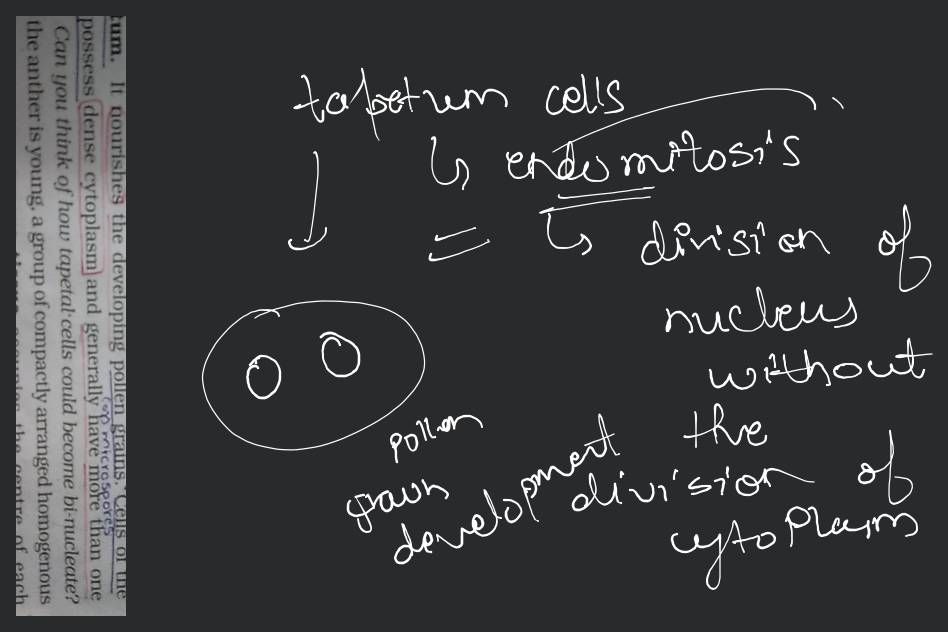 tum. It nourishes the developing pollen grains. Cells of the
(or microspores
possess dense cytoplasm and generally have more than one
Can you think of how tapetal cells could become bi-nucleate?
the anther is young, a group of compactly arranged homogenous
the centre of each
tapetum cells
↳ endomitosis
= ↳ division of
nucleus
without
the
division of
cytoplasm
pollen
grain
development